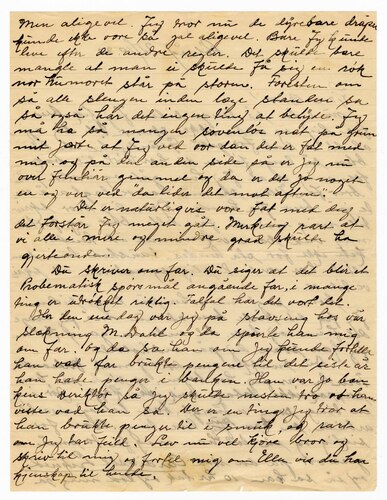 Men aligevel. Jeg tror nu de dyrebare dråper
kunde ikke vore så gal aligevel. Bare Jeg kunde
leve efter de andre reglr. Det skulde bare
mangle at man ei skulde få sig en røk
nor humoret står på storm. Foresten om
så alle slengen inden loge standen sa
så også har det ingen ting at betyde. Jeg
må ha så mangen søvenløs nat på grun
mit jærte at Jeg ved vor dan det er fat med
mig, og på den anden side så er Jeg nu
over femti år gimmel og da er det jo noget
en og ver ved "da lider det mot aften".
Det er naturligvis vore fat med dig
det forstår Jeg meget gåt. Merkelig part at
vi alle i mere og mindre grad skulde ha
gjerteonden.
Du skriver om far. Du siger at det blir et
Problematisk spørsmål angående far, i mange
ting er utrykket riktig. Talfal har det vort det.
Her den ene dag var jeg på stavseng hos vår
slegtning M. Dahl og da spurte han mig
om far. Og da sa han om Jeg kunde fortelle
han ved far brukte pengene til det siste år
han hade penger i banken. Han var jo ban
kens Direktør så Jeg skulde nesten tro at han
viste ved han sa. Der er en ting Jeg trår at
han brukte penger til i smuk og sart
om Jeg tar feild. Lev nu vel kjøre bror og
skriv til mig og fortel mig om Ellen vis du har
kjenskap til hende.